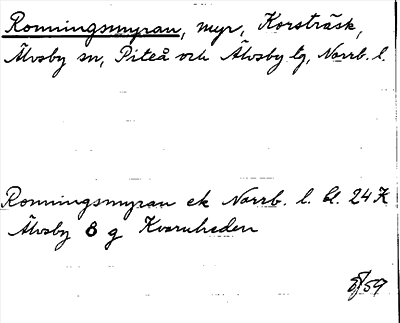 Ronningsmyran, myr, Korsträsk,
Älvsby sn, Piteå och Älvsby tg, Norrb. l.
Ronningsmyran ek Norrb. l. bl. 24 K
Älvsby 8 g Kvarnheden
/59